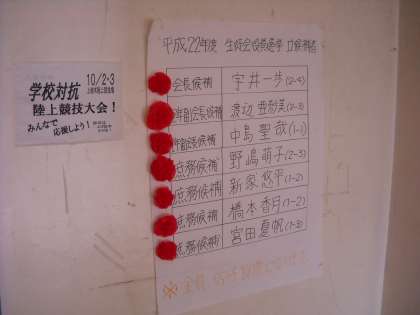 学校対抗
10/2・3
陸上競技大会！
みんなで応援しよう！
平成22年度 生徒会役員選挙 立候補者
会長候補 宇井一歩(2-4)
年副会長候補 渡辺亜紗美(2-3)
年副会長候補 中島聖哉(1-1)
庶務候補 野嶌萌子(2-3)
庶務候補 新家悠平(1-2)
庶務候補 橋本香月(1-2)
庶務候補 宮田夏帆(1-3)
※全員